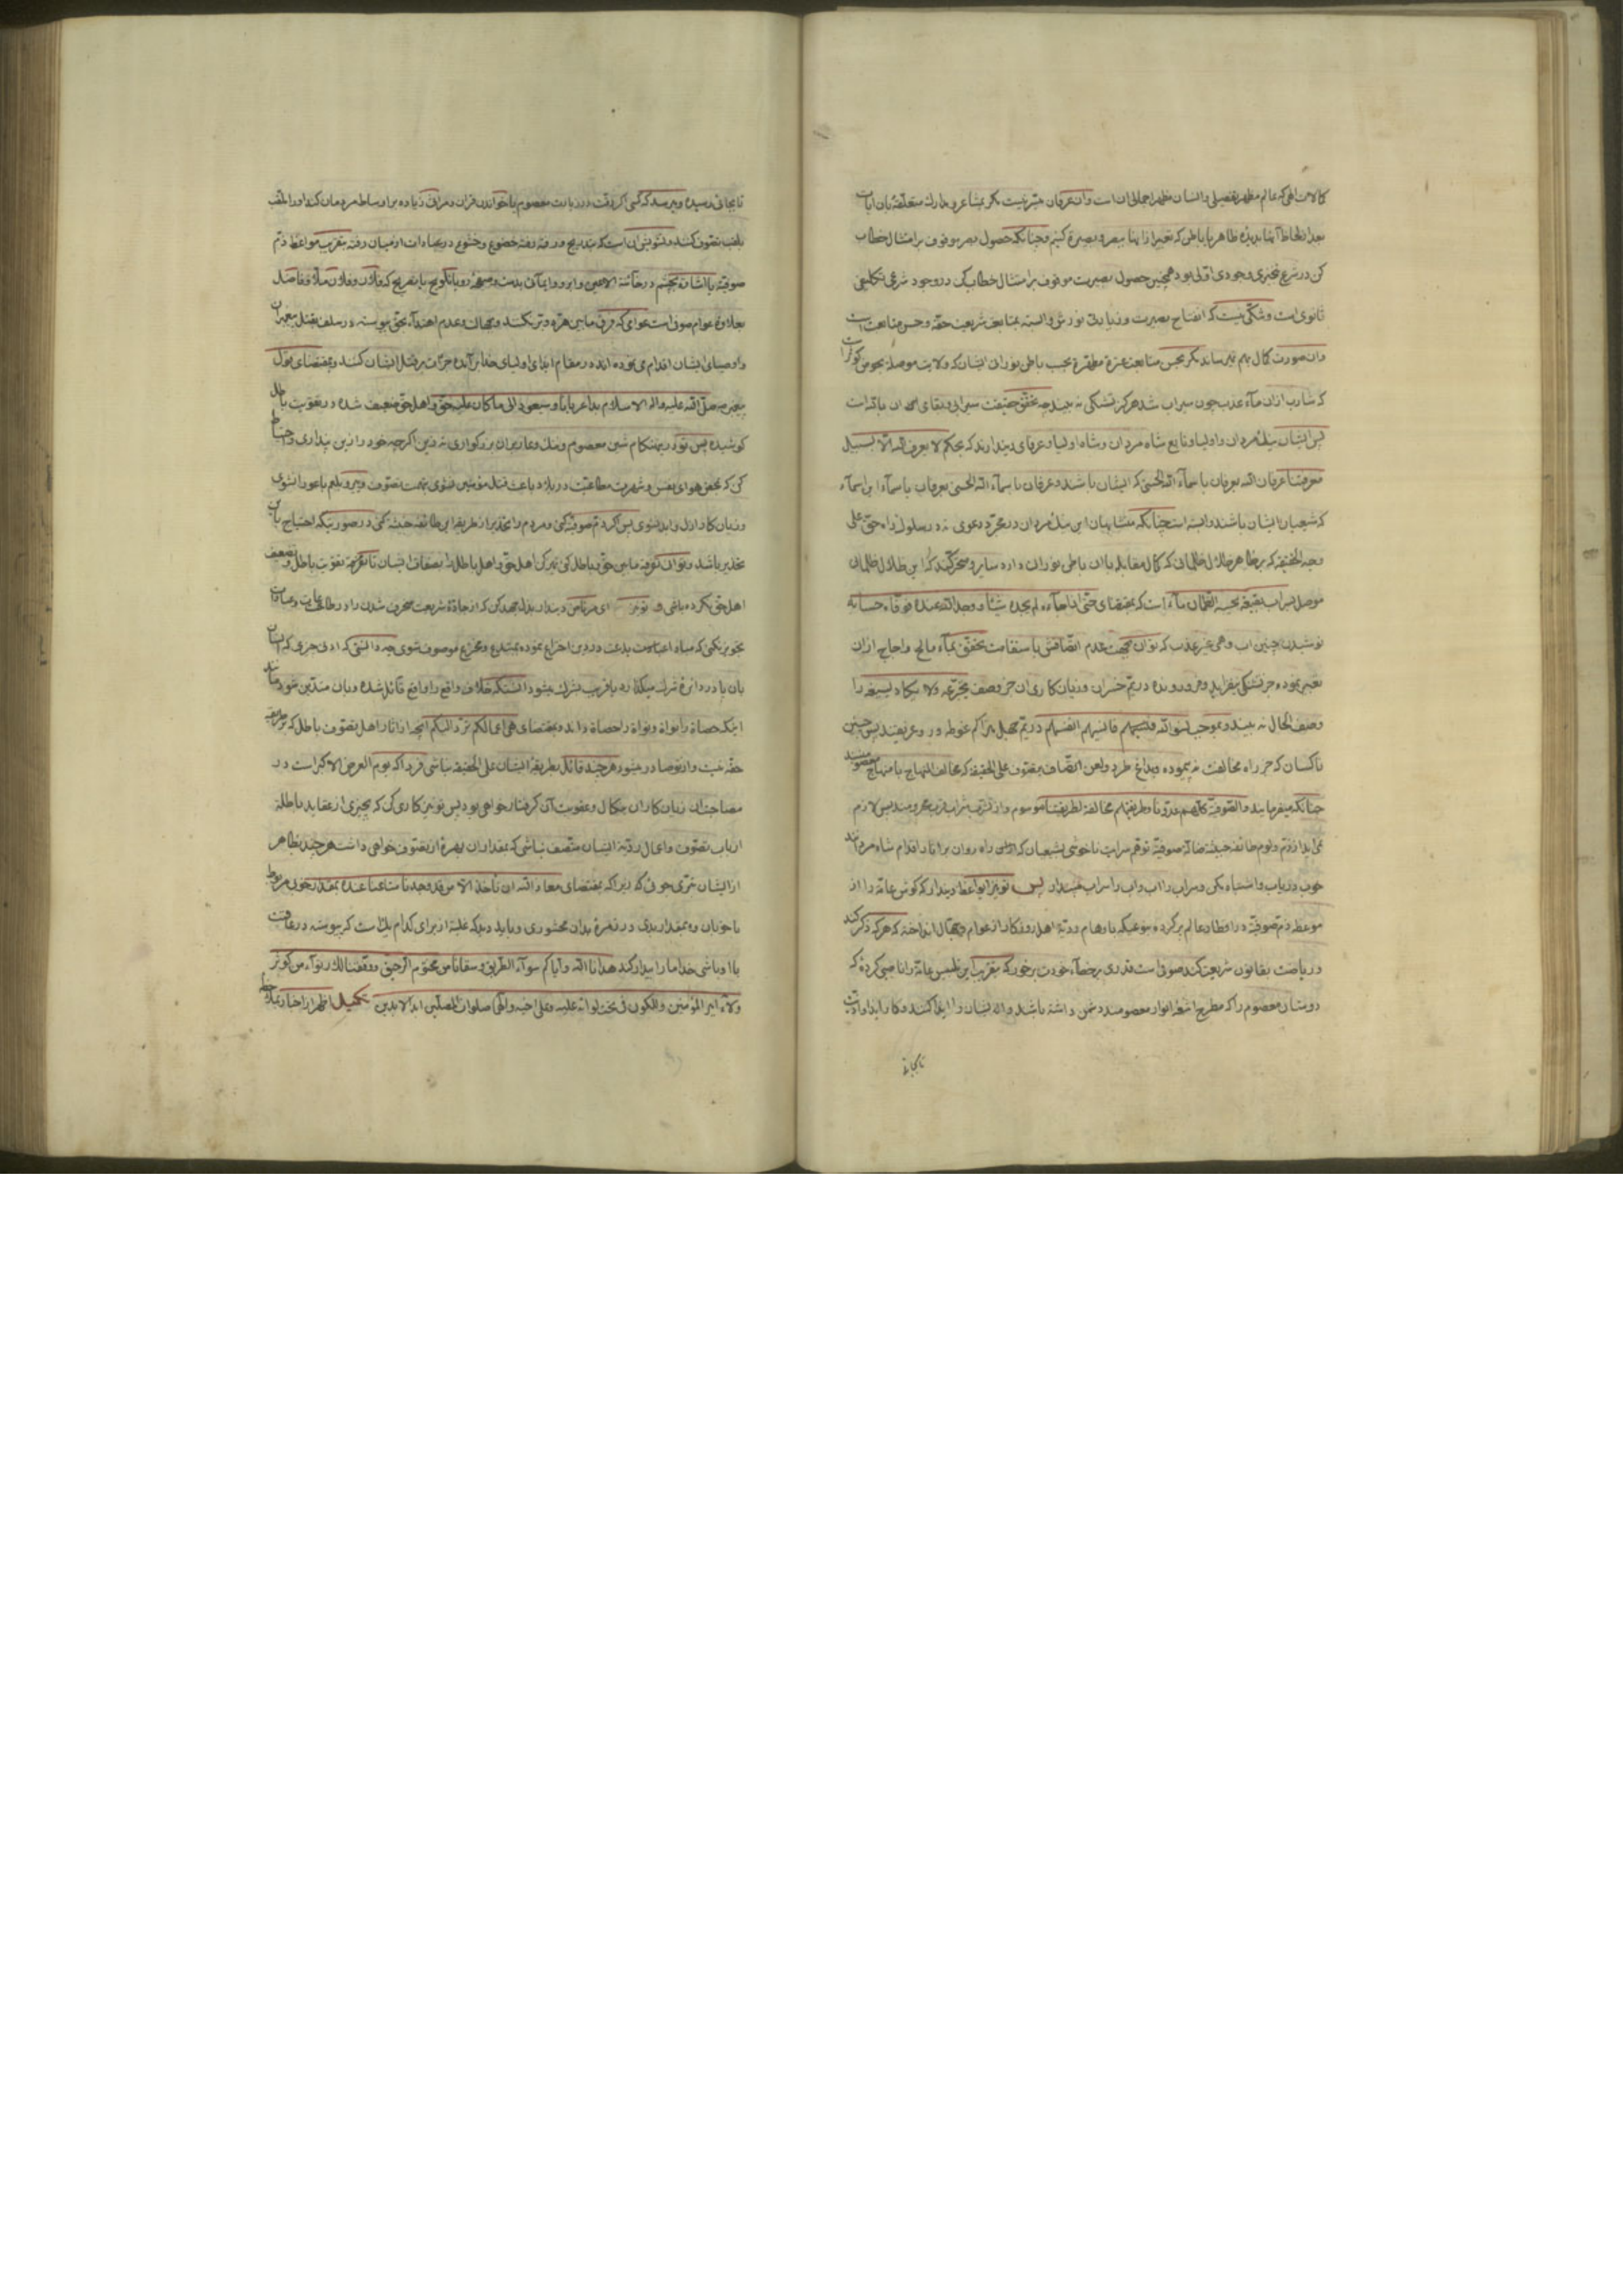 کمالات الهی که عالم مظهر تفصیلی و انسان مظهر اجمالی ان است و ان عرفان میسر نیست مکر بمشاعر و مدارک متعلقه بان
بعد از لحاظ آنها بدیده ظاهر یا باطن که تعبیر از اینها ببصر و بصیرة کنیم و چنانکه حصول بصر موقوف بر امتثال خطاب
کن در شرع وجودی اولی بود همچنین حصول بصیرت موقوف بر امتثال خطاب کن در وجود شرعی تکلیفی
ثانوی است و شکی نیست که انفتاح بصیرت و زیادتی نورش وابسته بمتابعت شریعت حقه و حسن متابعت است
و ان صورت کمال بهم نمیرساند مکر بحسن متابعت عترة مطهرة بحسب باطن نورانی ایشان که ولایت موصله بحوض کوثر است
که شارب ازان مآء عذب چون سیراب شد هرکز تشنکی نه بیند چه تحقق حقیقت سیرابی و بقای ان باقیه است
پس ایشان مردان و اولیا و تابع شاه مردان و شاه اولیا و عرفای دیندارند که بحکم لا یعرف الله الا بسبیل
معرفتنا عرفان الله بعرفان باسمآء الله الحسنی که ایشان باشند و عرفان باسمآء الله الحسنی بعرفان باسمآء این اسمآء
که شیعیان ایشان باشند وابسته است چنانکه متشابهان این مردان در مجرد دعوی نه در سلوک راه حق علی
وجه الحقیقه که بر ظاهر ظلال ظلمانی که کمال مقابله با ان باطن نورانی دارد سایر و متحرکند که این ظلال ظلمانی
موصل بسراب بقیعة یحسبه الظمآن مآء است که بمقتضای حتی اذا جآءه لم یجده شیئا و وجد الله عنده فوفاه حسابه
نوشیدن چنین اب وهمی غیر عذب که توان بجهت عدم اتصافش باستقامت تحقق بمآء مالح و اجاج ازان
تعبیر نموده جز تشنکی نیفزاید و فرو رونده در یم خسران و زیان کاری ان جز وصف یتجرعه ولا یکاد یسیغه را
وصف الحال نه بیند و بموجب نسوا الله فنسیهم فانسیهم انفسهم در یم جهل متراکم غوطه ور و غریقند پس چنین
ناکسان که جز راه مخالفت نه پیموده و بداغ طرد و لعن اتصاف بتصوف علی الحقیقه که مخالف المنهاج با منهاج معصومند
چنانکه میفرمایند والصوفیة کلهم عدونا وطریقتهم مخالفة لطریقتنا موسوم و از شراب قرب محرومند پس لازم
نمی اید از ذم و لوم طائفه خبیثه ضاله صوفیه توقع سرایت ناخوشی بشیعیان که راه روان بر اثار اقدام شاه مردانند
خون دریاب و اشتباه مکن و سراب را اب و اب را سراب مپندار پس تو نیز ایواعظ دیندار که کوش عامه را از
موعظه ذم صوفیه در اقطار عالم پر کرده بنوعیکه باوهام ردیة اهل روزکار از عوام و جهال انداخته که هرکه ذکر کند
و ریاضت بقانون شریعت کند صوفی است قدری برخطآء خودت برخور که بتقریب این تلبیس عامة را ناصبی کرده که
دوستان معصوم را که مطرح اشعه انوار معصومند دشمن داشته باشد و انه ایشان را ایذا کنند و کار ایذا و اذیت
تا بجائی
تا بجائی رسیده و میرسد که کسی اکر رقت در زیارت معصوم یا خواندن قران و مراثی زیاده بر اوساط مردمان کند او را ملقب
بلقب تصوف کنند و تشویش ان است که بتدریج و رفته رفته خضوع و خشوع در عبادات از میان رفته بتقریب مواعظ ذم
صوفیه یا اشاره بچشم در خآئنة الاعین و ابرو و ایمآی بدست و صفحه رو یا بتلویح یا بتصریح که فلان و فلان ملا و فاضل
بعلاوه عوام صوفی است عوامی که فرق مابین هره و بر نکنند و بجهالت و عدم اهتدآء بحق پیوسته در سلف بقتل پیغمبران
و اوصیای ایشان اقدام می نموده اند در مقام ایذای اولیای خدا بر آمده جرآت بر قتل ایشان کنند و بمقتضای قول
پیغمبر صلی الله علیه واله الاسلام بدا غریبا و سیعود الی ما کان علیه حق و اهل حق ضعیف شده در تقویت باطل
کوشیده پس تو در هنکام شین معصوم و ننک و عار بران بزرکواری نه زین اکرچه خود را زین پنداری و احتیاط
کن که بمحض هوای نفس و شهرت مطاعیت در بلاد باعث قتل مؤمنین نشوی بتهمت تصوف و پیرو بلعم باعورا نشوی
و زیان کار ازل و ابد نشوی پس اکر ذم صوفیه کنی و مردم را تحذیر از طریقه این طائفه خبیثه کنی در صورتیکه احتیاج بان
تحذیر باشد و توانی تفرقه مابین حق و باطل کنی تمیز کن اهل حق و اهل باطل را بصفات ایشان تا بتفرقه تقویت باطل و تضعیف
اهل حق نکرده باشی و تو نیز ای مرتاض دیندار بذل جهد کن که از جاده شریعت منحرف شدن را در طاعات و عبادات
تجویز نکنی که مبادا بدعت در دین اختراع نموده بمبتدع و مخترع موصوف شوی چه دانستی که ادنی چیزی که انسان
بان پا در دائره شرک میکذارد یا قریب بشرک میشود انستکه خلاف واقع را واقع قائل شده و بان متدین شود مانند
اینکه حصاة را نواة و نواة را حصاة داند و بمقتضای هی اعمالکم ترد الیکم انچه از اثار اهل تصوف باطل که بر طریقه
حقه نیست و از تو صادر میشود هرچند قائل بطریقه ایشان علی الحقیقه نباشی فردا که یوم العرض الاکبر است در
مصاحبت ان زیان کاران بنکال و عقوبت آن کرفتار خواهی بود پس تو نیز کاری کن که بچیزی از عقاید باطله
ارباب تصوف و اعمال ردیه ایشان متصف نباشی که بمقدار ان بهره از تصوف خواهی داشت هرچند بظاهر
از ایشان تبری جوئی که زیرا که بمقتضای معاذ الله ان نأخذ الا من وجدنا متاعنا عنده بمقدار خوبی مربوط
با خوبان و بمقدار بدی در زمرة بدان محشوری و باید دید که غلبه از برای کدام یک است که پیوسته در عاقبت
با او باشی خدا ما را بیدار کند هدانا الله وایاکم سوآء الطریق وسقانا من مختوم الرحیق ووفقنا لذلک بولآء من کوثر
ولآء امیر المؤمنین والکون فی تحت لوائه علیه وعلی اخیه والهما صلوات المصلین ابد الابدین تکمیل اظهر از اخبار